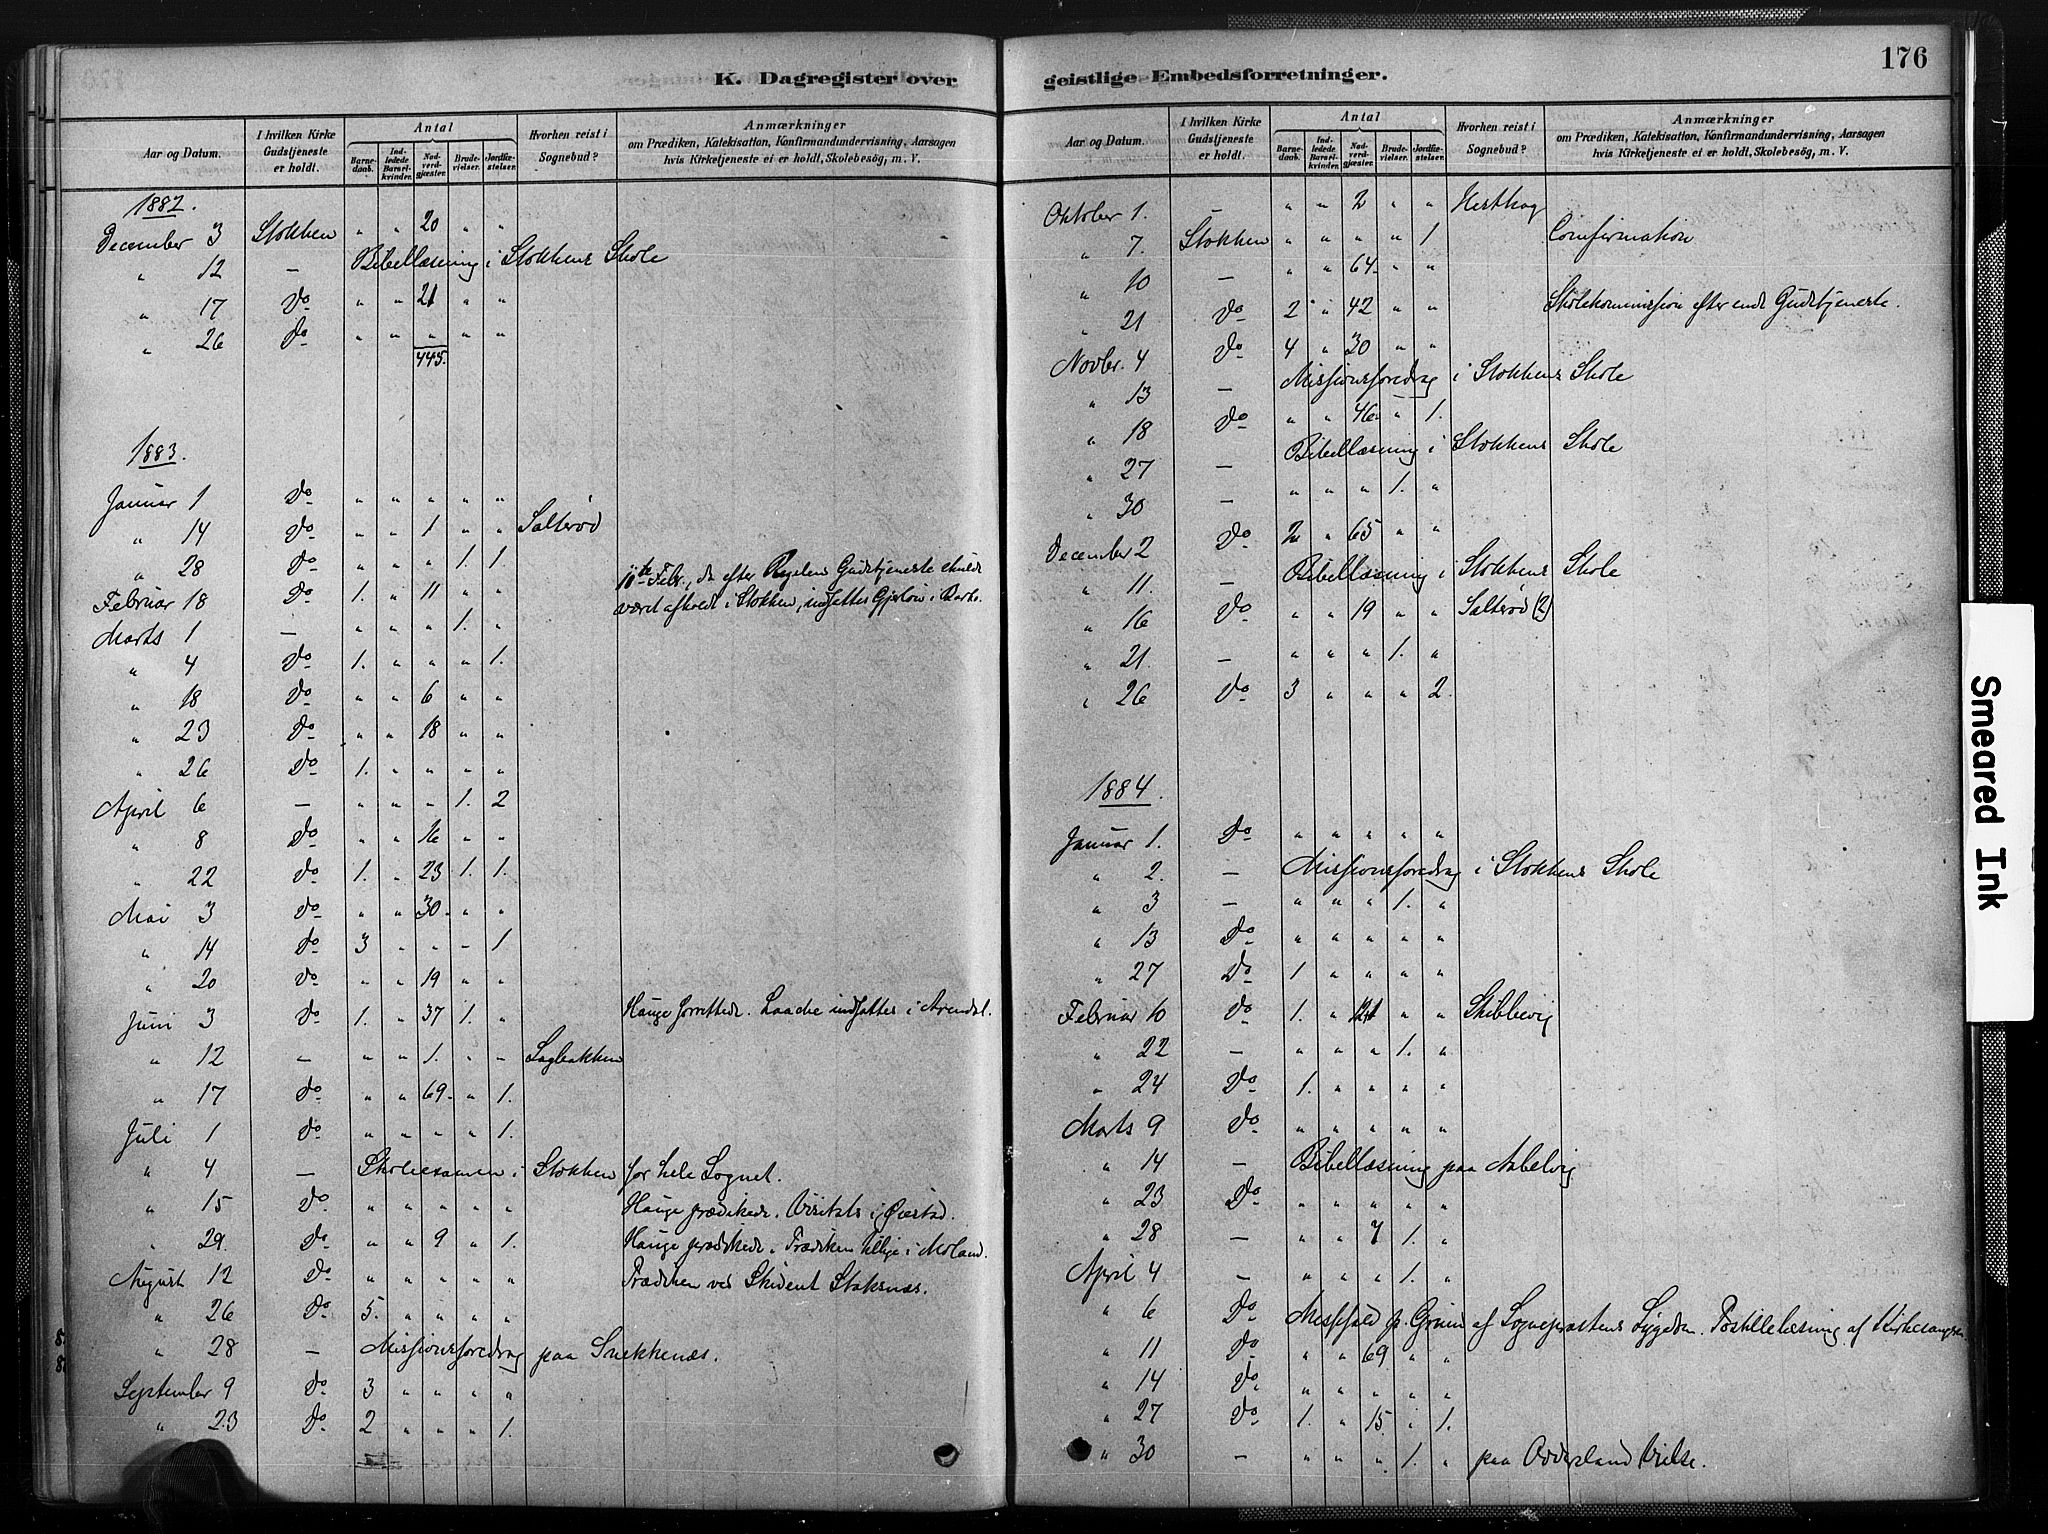 K. Dagregister over
Aar og Datum.
I hvilken Kirke Gudstjeneste er holdt.
Antal
Barnedaab.
Indledede Barselkvinder.
Nadverdgjæster.
Brudevielser.
Jordfæstelser.
Hvorhen reist i Sognebud?
Anmærkninger
om Prædiken, Katekisation, Konfirmandundervisning, Aarsagen hvis Kirketjeneste ei er holdt, Skolebesög, m. V.
1882.
December 3 Stokken " " 20 " "
" 12 — Bibellæsning i Stokkens Skole
" 17 do " " 21 " "
" 26 do " " " " "
445.
1883.
Januar 1 do " " " " "
" 14 do " " 1 " " Salterød
" 28 do " " " 1. 1.
11te Febr., da efter Reglens Gudstjeneste skulde
Februar 18 do 1. " 11 " " været afholdt i Stokken, indsattes Gjerløw i Barbo.
Marts 1 — " " " 1. "
" 4 do 1. " " " 1.
" 18 do " " 6 " "
" 23 do " " 18 " "
" 26 do 1. " " " "
April 6 — " " " 1. 2
" 8 do " " 16 " "
" 22 do 1. " 23 1. 1.
Mai 3 do " " 30 " "
" 14 do 3 " " " 1
" 20 do " " 19 " "
Juni 3 do 1. " 37 1. " Hauge forrettede. Laache indsattes i Arendal.
" 12 — " " 1. " " Sagbakken
" 17 do " " 69 " 1.
Juli 1 do " " " " 1.
" 4 — Skoleexamen i Stokken for hele Sognet.
" 15 do " " " " " Hauge prædikede. Visitats i Øiestad.
" 29. do " " 9 " 1. Hauge prædikede. Prædiken tillige i Moland.
August 12 do " " " " " Prædiken ved Student Stoksnæs.
" 26 do 5. " " " "
" 28 — Missionsforedrag paa Snekkenæs.
September 9 do 3 " " " "
" 23 do 2 " " " 1.
geistlige Embedsforretninger.
176
Aar og Datum.
I hvilken Kirke Gudstjeneste er holdt.
Antal
Barnedaab.
Indledede Barselkvinder.
Nadverdgjæster.
Brudevielser.
Jordfæstelser.
Hvorhen reist i Sognebud?
Anmærkninger
om Prædiken, Katekisation, Konfirmandundervisning, Aarsagen hvis Kirketjeneste ei er holdt, Skolebesög, m. V.
Oktober 1. — " " 2 " "
" 7. Stokken " " " " 1. Confirmation
" 10 — " " 64 " "
" 21 do 2 " 42 " " Skolekommission efter endt Gudstjeneste.
Novbr. 4 do 4 " 30 " "
" 13 — Missionsforedrag i Stokkens Skole
" 18 do " " 46 " 1.
" 27 — Bibellæsning i Stokkens Skole
" 30 — " " " 1. "
December 2 do 2 " 65 " "
" 11. — Bibellæsning i Stokkens Skole
" 16 do " " 19 " " Salterød (2)
" 21. — " " " 1. "
" 26 do 3 " " " 2.
1884.
Januar 1. do " " " " "
" 2. — Missionsforedrag i Stokkens Skole
" 3 — " " " 1. "
" 13 do " " " " "
" 27 do 1 " " " "
Februar 10 do 1. " 21 " " Skibbevig
" 22 — " " " 1. "
" 24 do 1. " " " "
Marts 9 do " " " " "
" 14 — Bibellæsning paa Aabelvig
" 23 do " " " " "
" 28 — " " 7 1. "
April 4 — " " " 1. "
" 6 do Messefald p. Grund af Sognepræstens Sygdom. Postillelæsning af Kirkesangeren
" 11 do " " 69 " "
" 14 do " " " " "
" 27 do 1. " 15 " 1.
" 30 — " " " 1. " paa Vielse.
Smeared Ink